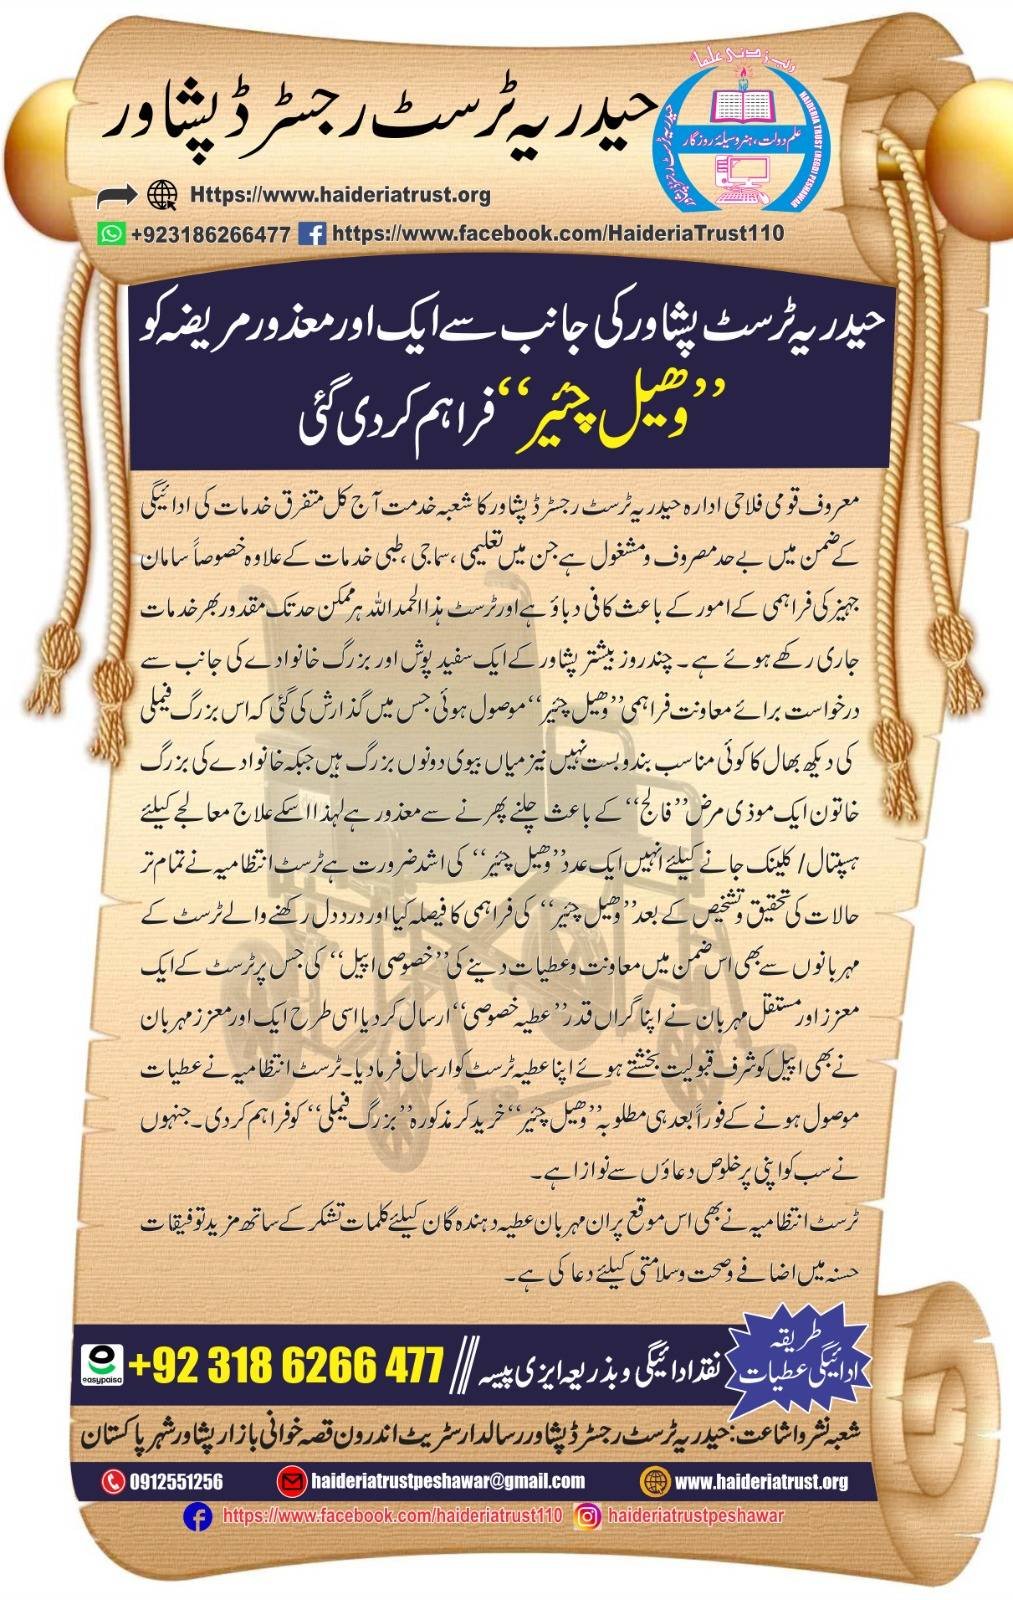 حیدریہ ٹرسٹ رجسٹرڈ پشاور
رب زدنی علما
HAIDERIA TRUST (REGD) PESHAWAR
حیدریہ ٹرسٹ رجسٹرڈ پشاور
علم دولت، ہنر وسیلۂ روزگار
Https://www.haideriatrust.org
+923186266477 https://www.facebook.com/HaideriaTrust110
حیدریہ ٹرسٹ پشاور کی جانب سے ایک اور معذور مریضہ کو
’’وھیل چئیر‘‘ فراہم کردی گئی
معروف قومی فلاحی ادارہ حیدریہ ٹرسٹ رجسٹرڈ پشاور کا شعبہ خدمت آج کل متفرق خدمات کی ادائیگی
کے ضمن میں بے حد مصروف ومشغول ہے جن میں تعلیمی ،سماجی ،طبی خدمات کے علاوہ خصوصاً سامان
جہیز کی فراہمی کے امور کے باعث کافی دباؤ ہے اور ٹرسٹ ہذا الحمدالله ہرممکن حد تک مقدور بھر خدمات
جاری رکھے ہوئے ہے۔ چند روز بیشتر پشاور کے ایک سفید پوش اور بزرگ خانوادے کی جانب سے
درخواست برائے معاونت فراہمی ’’وھیل چئیر‘‘ موصول ہوئی جس میں گذارش کی گئی کہ اس بزرگ فیملی
کی دیکھ بھال کا کوئی مناسب بندوبست نہیں نیز میاں بیوی دونوں بزرگ ہیں جبکہ خانوادے کی بزرگ
خاتون ایک موذی مرض ’’فالج‘‘ کے باعث چلنے پھرنے سے معذور ہے لہذا اسکے علاج معالجے کیلئے
ہسپتال/ کلینک جانے کیلئے انہیں ایک عدد ’’وھیل چئیر‘‘ کی اشد ضرورت ہے ٹرسٹ انتظامیہ نے تمام تر
حالات کی تحقیق و تشخیص کے بعد ’’وھیل چئیر‘‘ کی فراہمی کا فیصلہ کیا اور درد دل رکھنے والے ٹرسٹ کے
مہربانوں سے بھی اس ضمن میں معاونت وعطیات دینے کی ’’خصوصی اپیل‘‘ کی جس پر ٹرسٹ کے ایک
معزز اور مستقل مہربان نے اپنا گراں قدر ’’عطیہ خصوصی‘‘ ارسال کردیا اسی طرح ایک اور معزز مہربان
نے بھی اپیل کو شرف قبولیت بخشتے ہوئے اپنا عطیہ ٹرسٹ کو ارسال فرمادیا۔ ٹرسٹ انتظامیہ نے عطیات
موصول ہونے کے فوراً بعد ہی مطلوبہ ’’وھیل چئیر‘‘ خرید کر مذکورہ ’’بزرگ فیملی‘‘ کو فراہم کردی۔ جنہوں
نے سب کو اپنی پرخلوص دعاؤں سے نوازا ہے۔
ٹرسٹ انتظامیہ نے بھی اس موقع پر ان مہربان عطیہ دہندہ گان کیلئے کلمات تشکر کے ساتھ مزید توفیقات
حسنہ میں اضافے وصحت وسلامتی کیلئے دعا کی ہے۔
طریقہ
ادائیگی عطیات
نقد ادائیگی وبذریعہ ایزی پیسہ /// +92 318 6266 477
easypaisa
شعبہ نشر و اشاعت: حیدریہ ٹرسٹ رجسٹرڈ پشاور رسالدار سٹریٹ اندرون قصہ خوانی بازار پشاور شہر پاکستان
0912551256 haideriatrustpeshawar@gmail.com www.haideriatrust.org
https://www.facebook.com/haideriatrust110 haideriatrustpeshawar